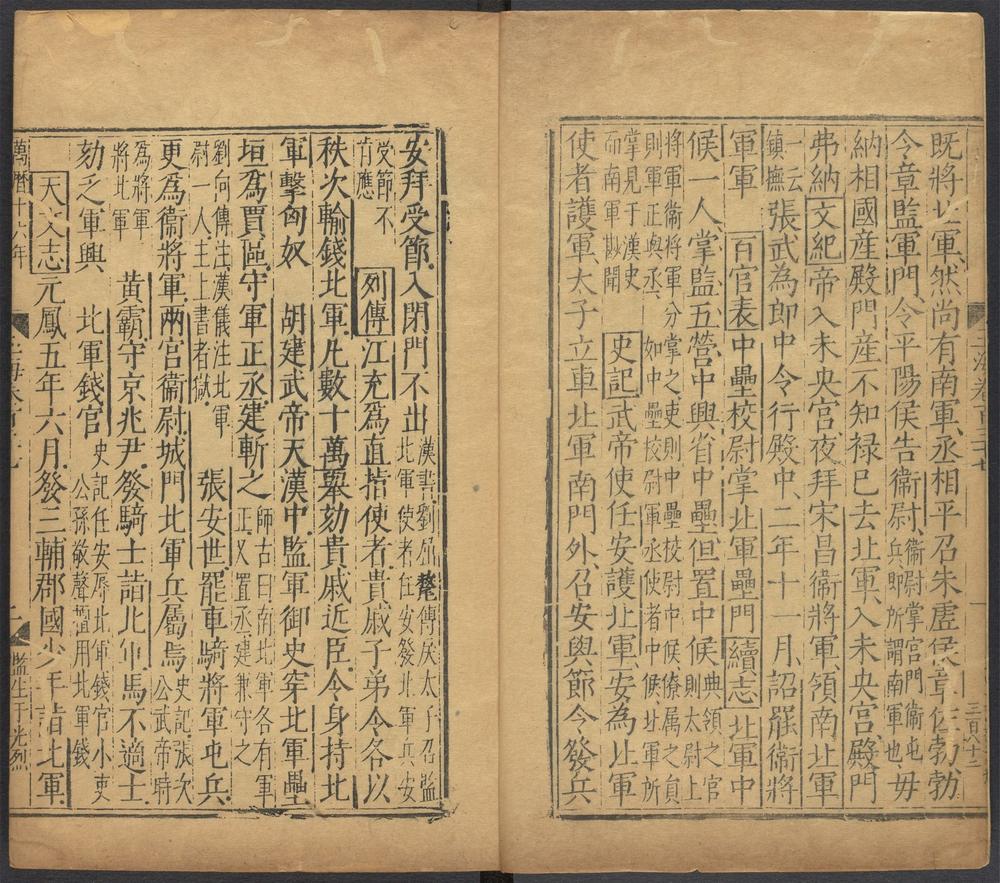 既將北軍然尚有南軍丞相平召朱虛侯章佐勃勃
令章監軍門令平陽侯告衞尉衞尉掌宮門衞屯兵即所謂南軍也毋
納相國産殿門産不知禄已去北軍入未央宮殿門
弗納文紀帝入未央宮夜拜宋昌衞將軍領南北軍
一云鎮撫張武為郎中令行殿中二年十一月詔罷衞將
軍軍百官表中壘校尉掌北軍壘門續志北軍中
候一人掌監五營中興省中壘但置中候典領之官太尉上
將軍衞將軍分掌之吏則中壘校尉中候僚属之貟
則軍正與丞如中壘校尉軍丞使者中候北軍所
掌見于漢史而南軍尠聞史記武帝使任安護北軍安為北軍
使者護軍太子立車北軍南門外召安與節令發兵
安拜受節入閉門不出漢書劉屈氂傳戾太子召監北軍使者任安發北軍兵安
受節不肯應列傳江充爲直指使者貴戚子弟令各以
秩次輸錢北軍凡數十萬舉劾貴戚近臣令身持北
軍擊匈奴胡建武帝天漢中監軍御史穿北軍壘
垣爲賈區守軍正丞建斬之師古曰南北軍各有軍正又置丞建兼守之
劉向傳注漢儀注北軍尉一人主上書者獄張安世罷車騎將軍屯兵
更爲衞將軍兩宮衞尉城門北軍兵屬焉史記張次公武帝時
為將軍將北軍黃霸守京兆尹發騎士詣北軍馬不適士
劾乏軍興北軍錢官史記任安辱北軍錢官小吏公孫敬聲擅用北軍錢
天文志元鳳五年六月發三輔郡國少年詣北軍
萬曆十六年
監生于光烈